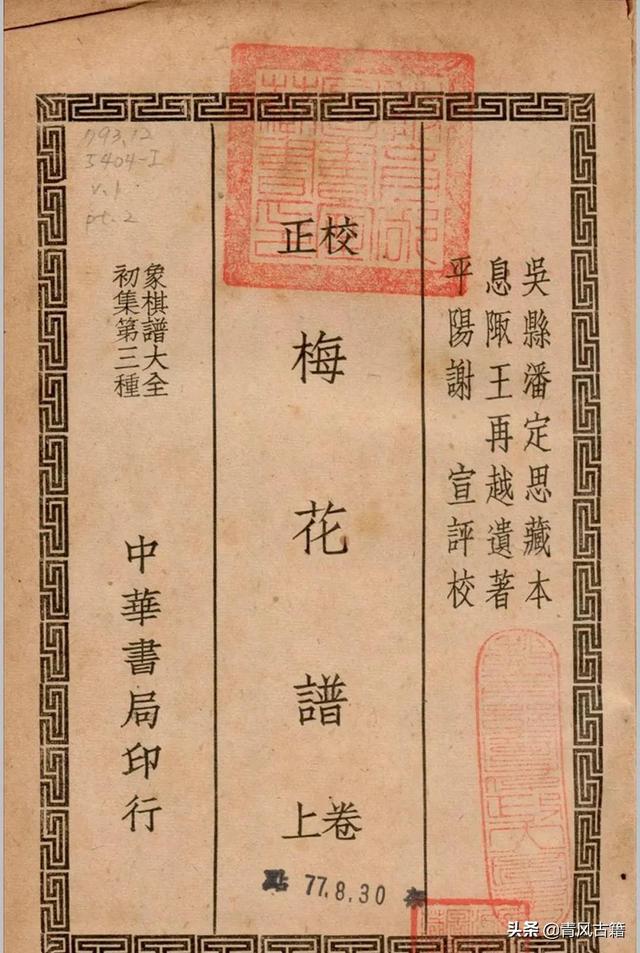 吳縣潘定思藏本
息陬王再越遺著
平陽謝宣評校
校正
梅花譜
卷上
象棋譜大全
初集第三種
中華書局印行
793.12
5404-I
v.1
pt.2
點 77.8.30
头条 @青风古籍